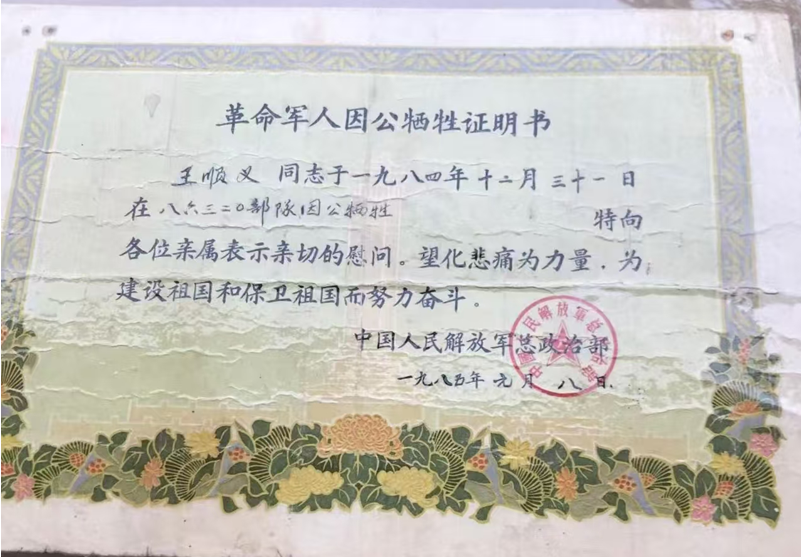 革命军人因公牺牲证明书
王顺义 同志于一九八四年十二月三十一日
在八六三二〇部队因公牺牲 特向
各位亲属表示亲切的慰问。望化悲痛为力量，为
建设祖国和保卫祖国而努力奋斗。
中国人民解放军总政治部
一九八五年元月八日
中国人民解放军总政治部